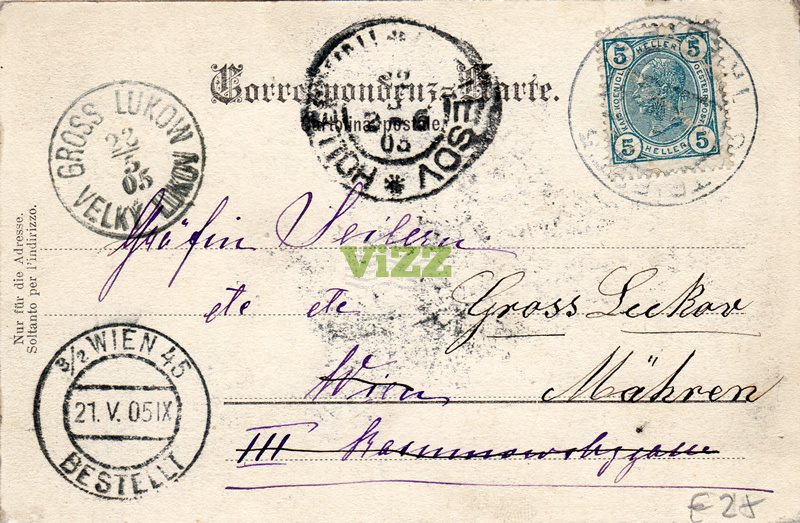 Correspondenz-Karte.
Cartolina postale.
5 HELLER 5
KAIS. KOENIGL. OESTERR. POST
5 HELLER 5
TRIEST
GROSS LUKOW
22
5
05
VELKÝ LUKOV
05
Nur für die Adresse.
Soltanto per l'indirizzo.
Gräfin Seilern
ViZZ
etc etc
Gross Lukov
Wien
Mähren
III
3/2 WIEN 45
21. V. 05 IX
BESTELLT